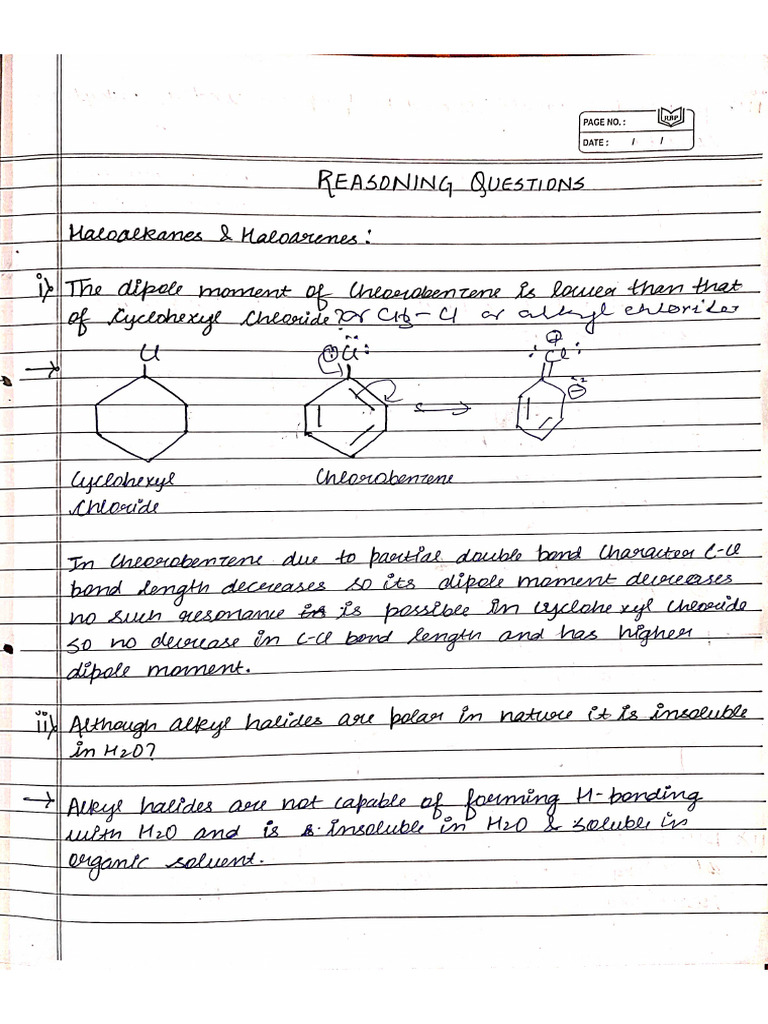 RBP
PAGE NO.:
DATE: / /
REASONING QUESTIONS
Haloalkanes & Haloarenes:
i) The dipole moment of Chlorobenzene is lower than that
of Cyclohexyl Chloride? Or CH3-Cl or alkyl chlorides
Cl
Cl
Cl
Cyclohexyl
Chloride
Chlorobenzene
In Chlorobenzene due to partial double bond character C-Cl
bond length decreases so its dipole moment decreases
no such resonance is possible in Cyclohexyl Chloride
so no decrease in C-Cl bond length and has higher
dipole moment.
ii) Although alkyl halides are polar in nature it is insoluble
in H2O?
→ Alkyl halides are not capable of forming H-bonding
with H2O and is insoluble in H2O & soluble in
organic solvent.